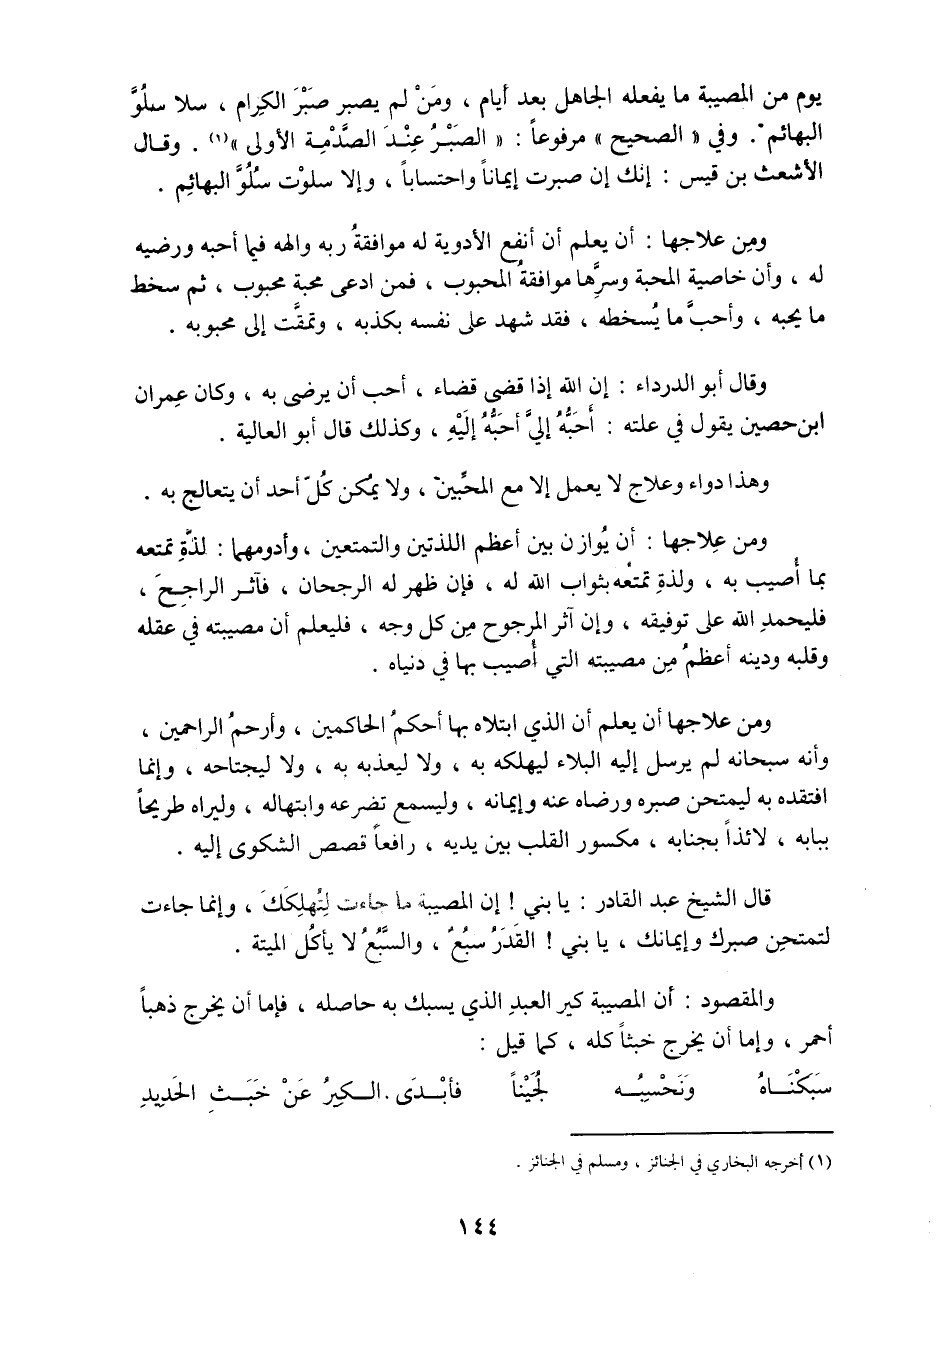 يوم من المصيبة ما يفعله الجاهل بعد أيام ، ومَنْ لم يصبر صَبْرَ الكِرام ، سلا سلُوَّ
البهائم . وفي « الصحيح » مرفوعاً : « الصَبْرُ عِنْدَ الصَّدْمِة الأولى »(١) . وقال
الأشعث بن قيس : إنك إن صبرت إيماناً واحتساباً ، وإلا سلوْت سُلُوَّ البهائِم .
ومِن علاجها : أن يعلم أن أنفع الأدوية له موافقةُ ربه وإلهه فيما أحبه ورضيه
له ، وأن خاصية المحبة وسرَّها موافقةُ المحبوب ، فمن ادعى محبة محبوب ، ثم سخط
ما يحبه ، وأحبَّ ما يُسخطه ، فقد شهد على نفسه بكذبه ، وتمقَّت إلى محبوبه .
وقال أبو الدرداء : إن الله إذا قضى قضاء ، أحب أن يرضى به ، وكان عِمران
ابن حصين يقول في علته : أَحَبُّهُ إليَّ أحَبُّهُ إلَيْهِ ، وكذلك قال أبو العالية .
وهذا دواء وعلاج لا يعمل إلا مع المحبِّين ، ولا يمكن كُلّ أحد أن يتعالج به .
ومن عِلاجها : أن يُوازن بين أعظم اللذتين والتمتعين ، وأدومهما : لذَّةِ تمتعه
بما أُصيب به ، ولذةِ تمتُّعه بثواب الله له ، فإن ظهر له الرجحان ، فآثر الراجِحَ ،
فليحمدِ الله على توفيقه ، وإن آثر المرجوح مِن كل وجه ، فليعلم أن مصيبته في عقله
وقلبه ودينه أعظمُ مِن مصيبته التي أُصيب بها في دنياه .
ومن علاجها أن يعلم أن الذي ابتلاه بها أحكمُ الحاكمين ، وأرحمُ الراحمين ،
وأنه سبحانه لم يرسل إليه البلاء ليهلكه به ، ولا ليعذبه به ، ولا ليجتاحه ، وإنما
افتقده به ليمتحن صبره ورضاه عنه وإيمانه ، وليسمع تضرعه وابتهاله ، وليراه طريحاً
ببابه ، لائذاً بجنابه ، مكسور القلب بين يديه ، رافعاً قصص الشكوى إليه .
قال الشيخ عبد القادر : يا بني ! إن المصيبة ما جاءت لِتُهلِكَكَ ، وإنما جاءت
لتمتحِن صبرك وإيمانك ، يا بني ! القَدَرُ سبُعٌ ، والسَّبُعُ لا يأكُل الميتة .
والمقصود : أن المصيبة كير العبدِ الذي يسبك به حاصله ، فإما أن يخرج ذهباً
أحمر ، وإما أن يخرج خبثاً كله ، كما قيل :
سَبَكْنَاهُ وَنَحْسِبُه لُجَيْناً فأبْدَى الكِيرُ عَنْ خَبَثِ الحَدِيدِ
(١) أخرجه البخاري في الجنائز ، ومسلم في الجنائز .
١٤٤